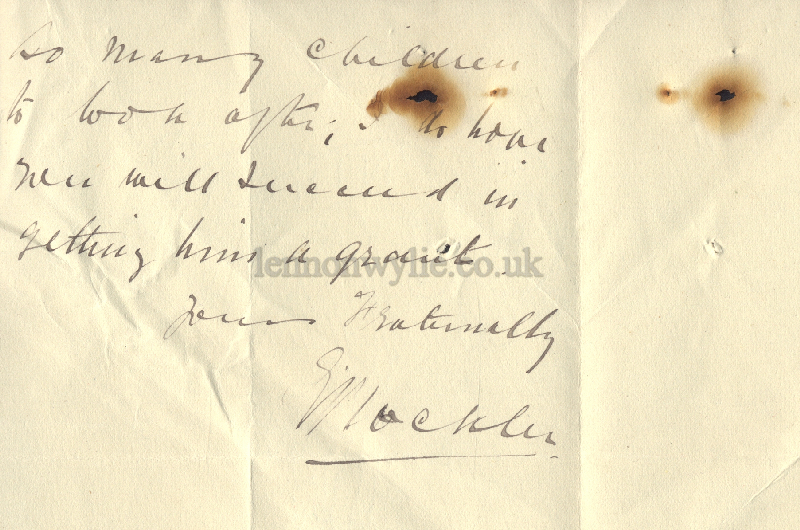 so many children
to look after; I do hope
you will succeed in
getting him a grant.
lennonwylie.co.uk
Yours Fraternally
Mockler